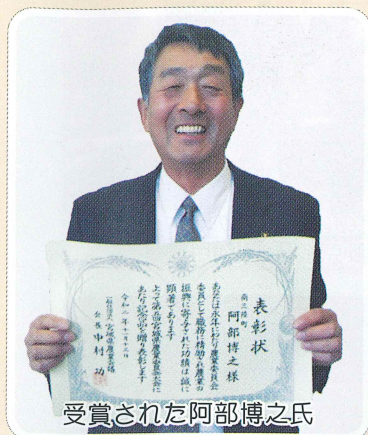 表彰状
南三陸町
阿部博之様
あなたは永年にわたり農業委員会
委員として職務に精励され農業の
振興に寄与された功績は誠に
顕著であります
よって
あなたの
を贈り表彰します
令和二年十一月
一般社団法人宮城県農業会議
会長 中村 功
受賞された阿部博之氏